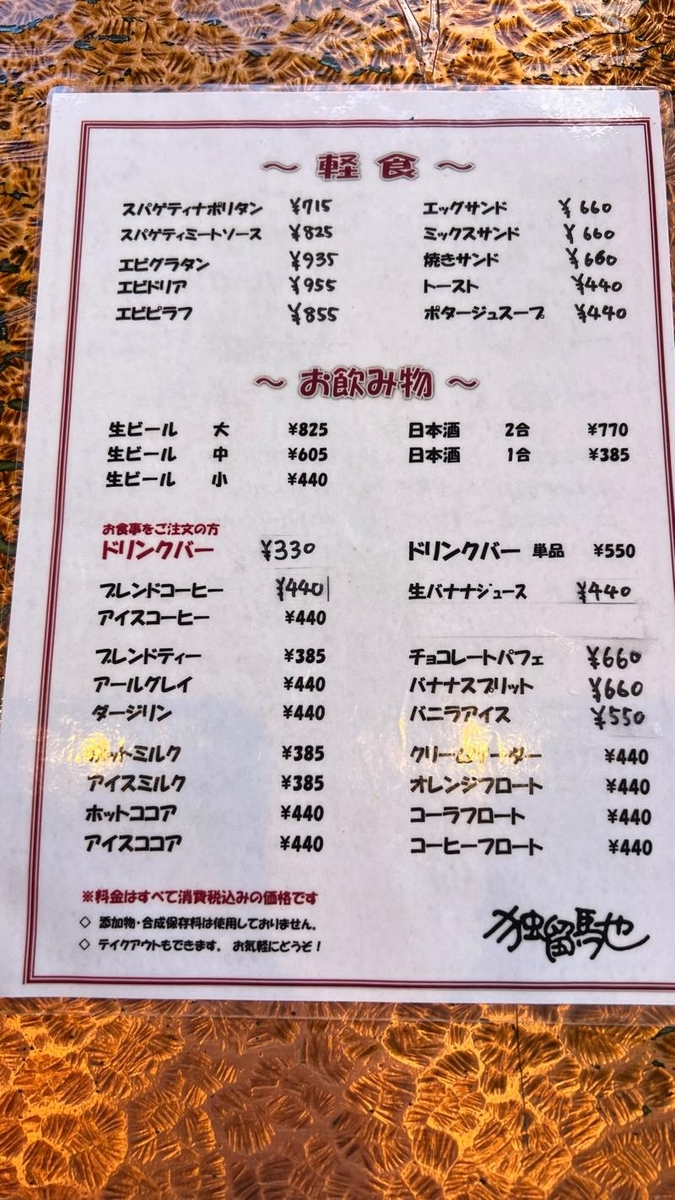 ～ 軽 食 ～
スパゲティナポリタン ¥715
スパゲティミートソース ¥825
エビグラタン ¥935
エビドリア ¥955
エビピラフ ¥855
エッグサンド ¥660
ミックスサンド ¥660
焼きサンド ¥660
トースト ¥440
ポタージュスープ ¥440
～ お飲み物 ～
生ビール 大 ¥825
生ビール 中 ¥605
生ビール 小 ¥440
日本酒 2合 ¥770
日本酒 1合 ¥385
お食事をご注文の方
ドリンクバー ¥330
ブレンドコーヒー ¥440
アイスコーヒー ¥440
ブレンドティー ¥385
アールグレイ ¥440
ダージリン ¥440
ホットミルク ¥385
アイスミルク ¥385
ホットココア ¥440
アイスココア ¥440
ドリンクバー 単品 ¥550
生バナナジュース ¥440
チョコレートパフェ ¥660
バナナスプリット ¥660
バニラアイス ¥550
クリームソーダー ¥440
オレンジフロート ¥440
コーラフロート ¥440
コーヒーフロート ¥440
※料金はすべて消費税込みの価格です
◇ 添加物・合成保存料は使用しておりません。
◇ テイクアウトもできます。 お気軽にどうぞ！
独留馬也